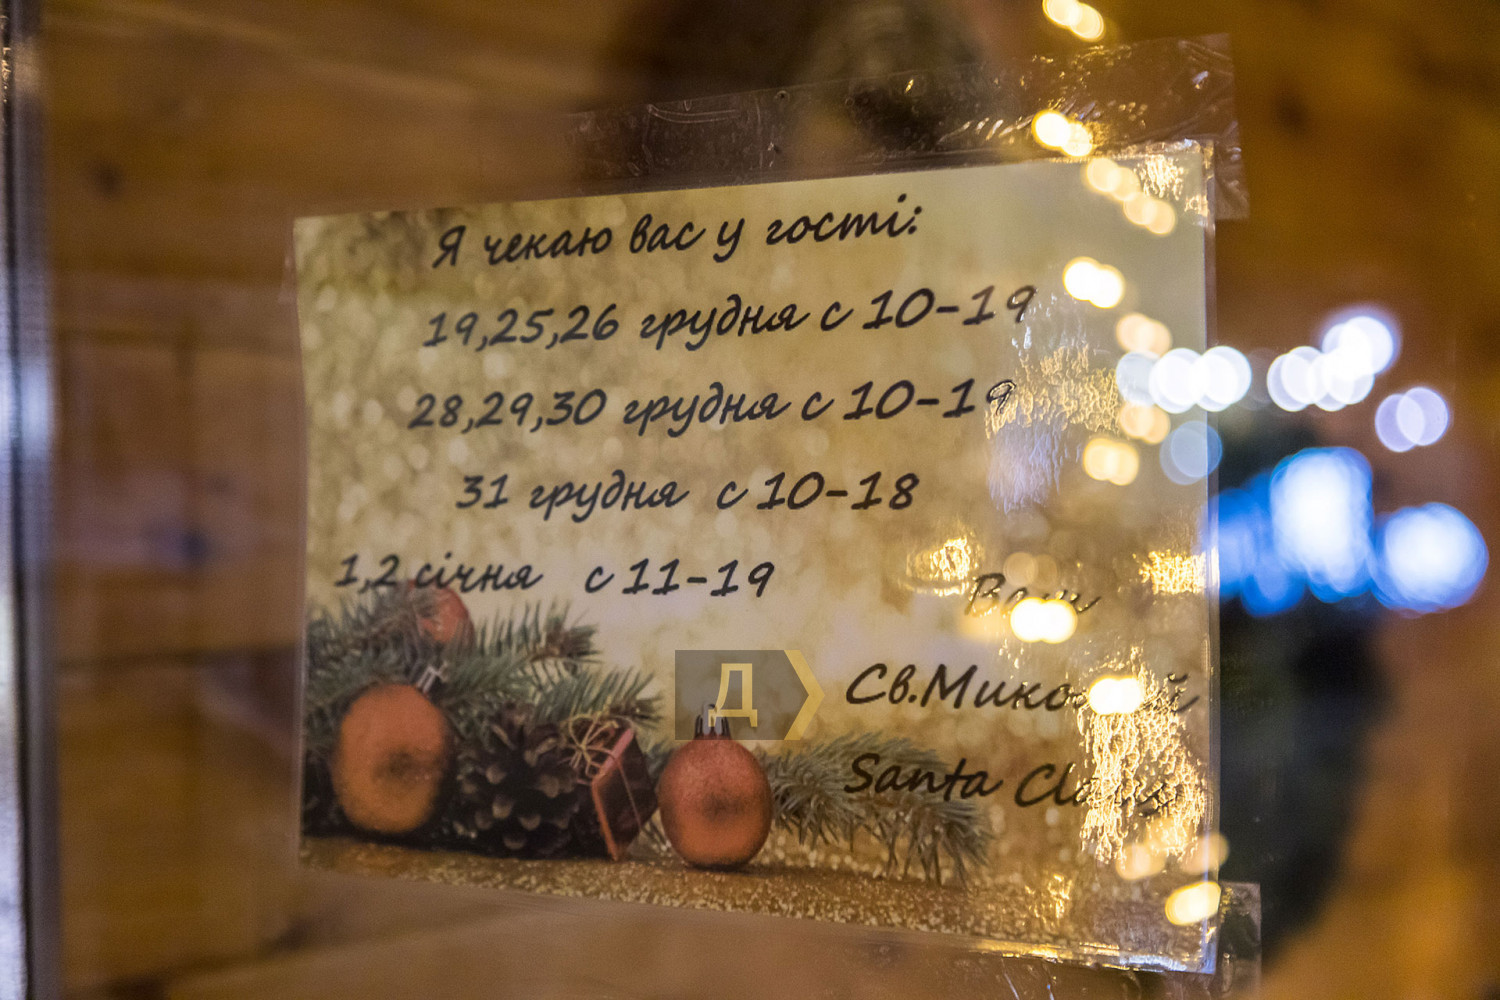 Я чекаю вас у гості:
19,25,26 грудня с 10-19
28,29,30 грудня с 10-19
31 грудня с 10-18
1,2 січня с 11-19
Ваш
Св.Миколай
Д
Santa Claus